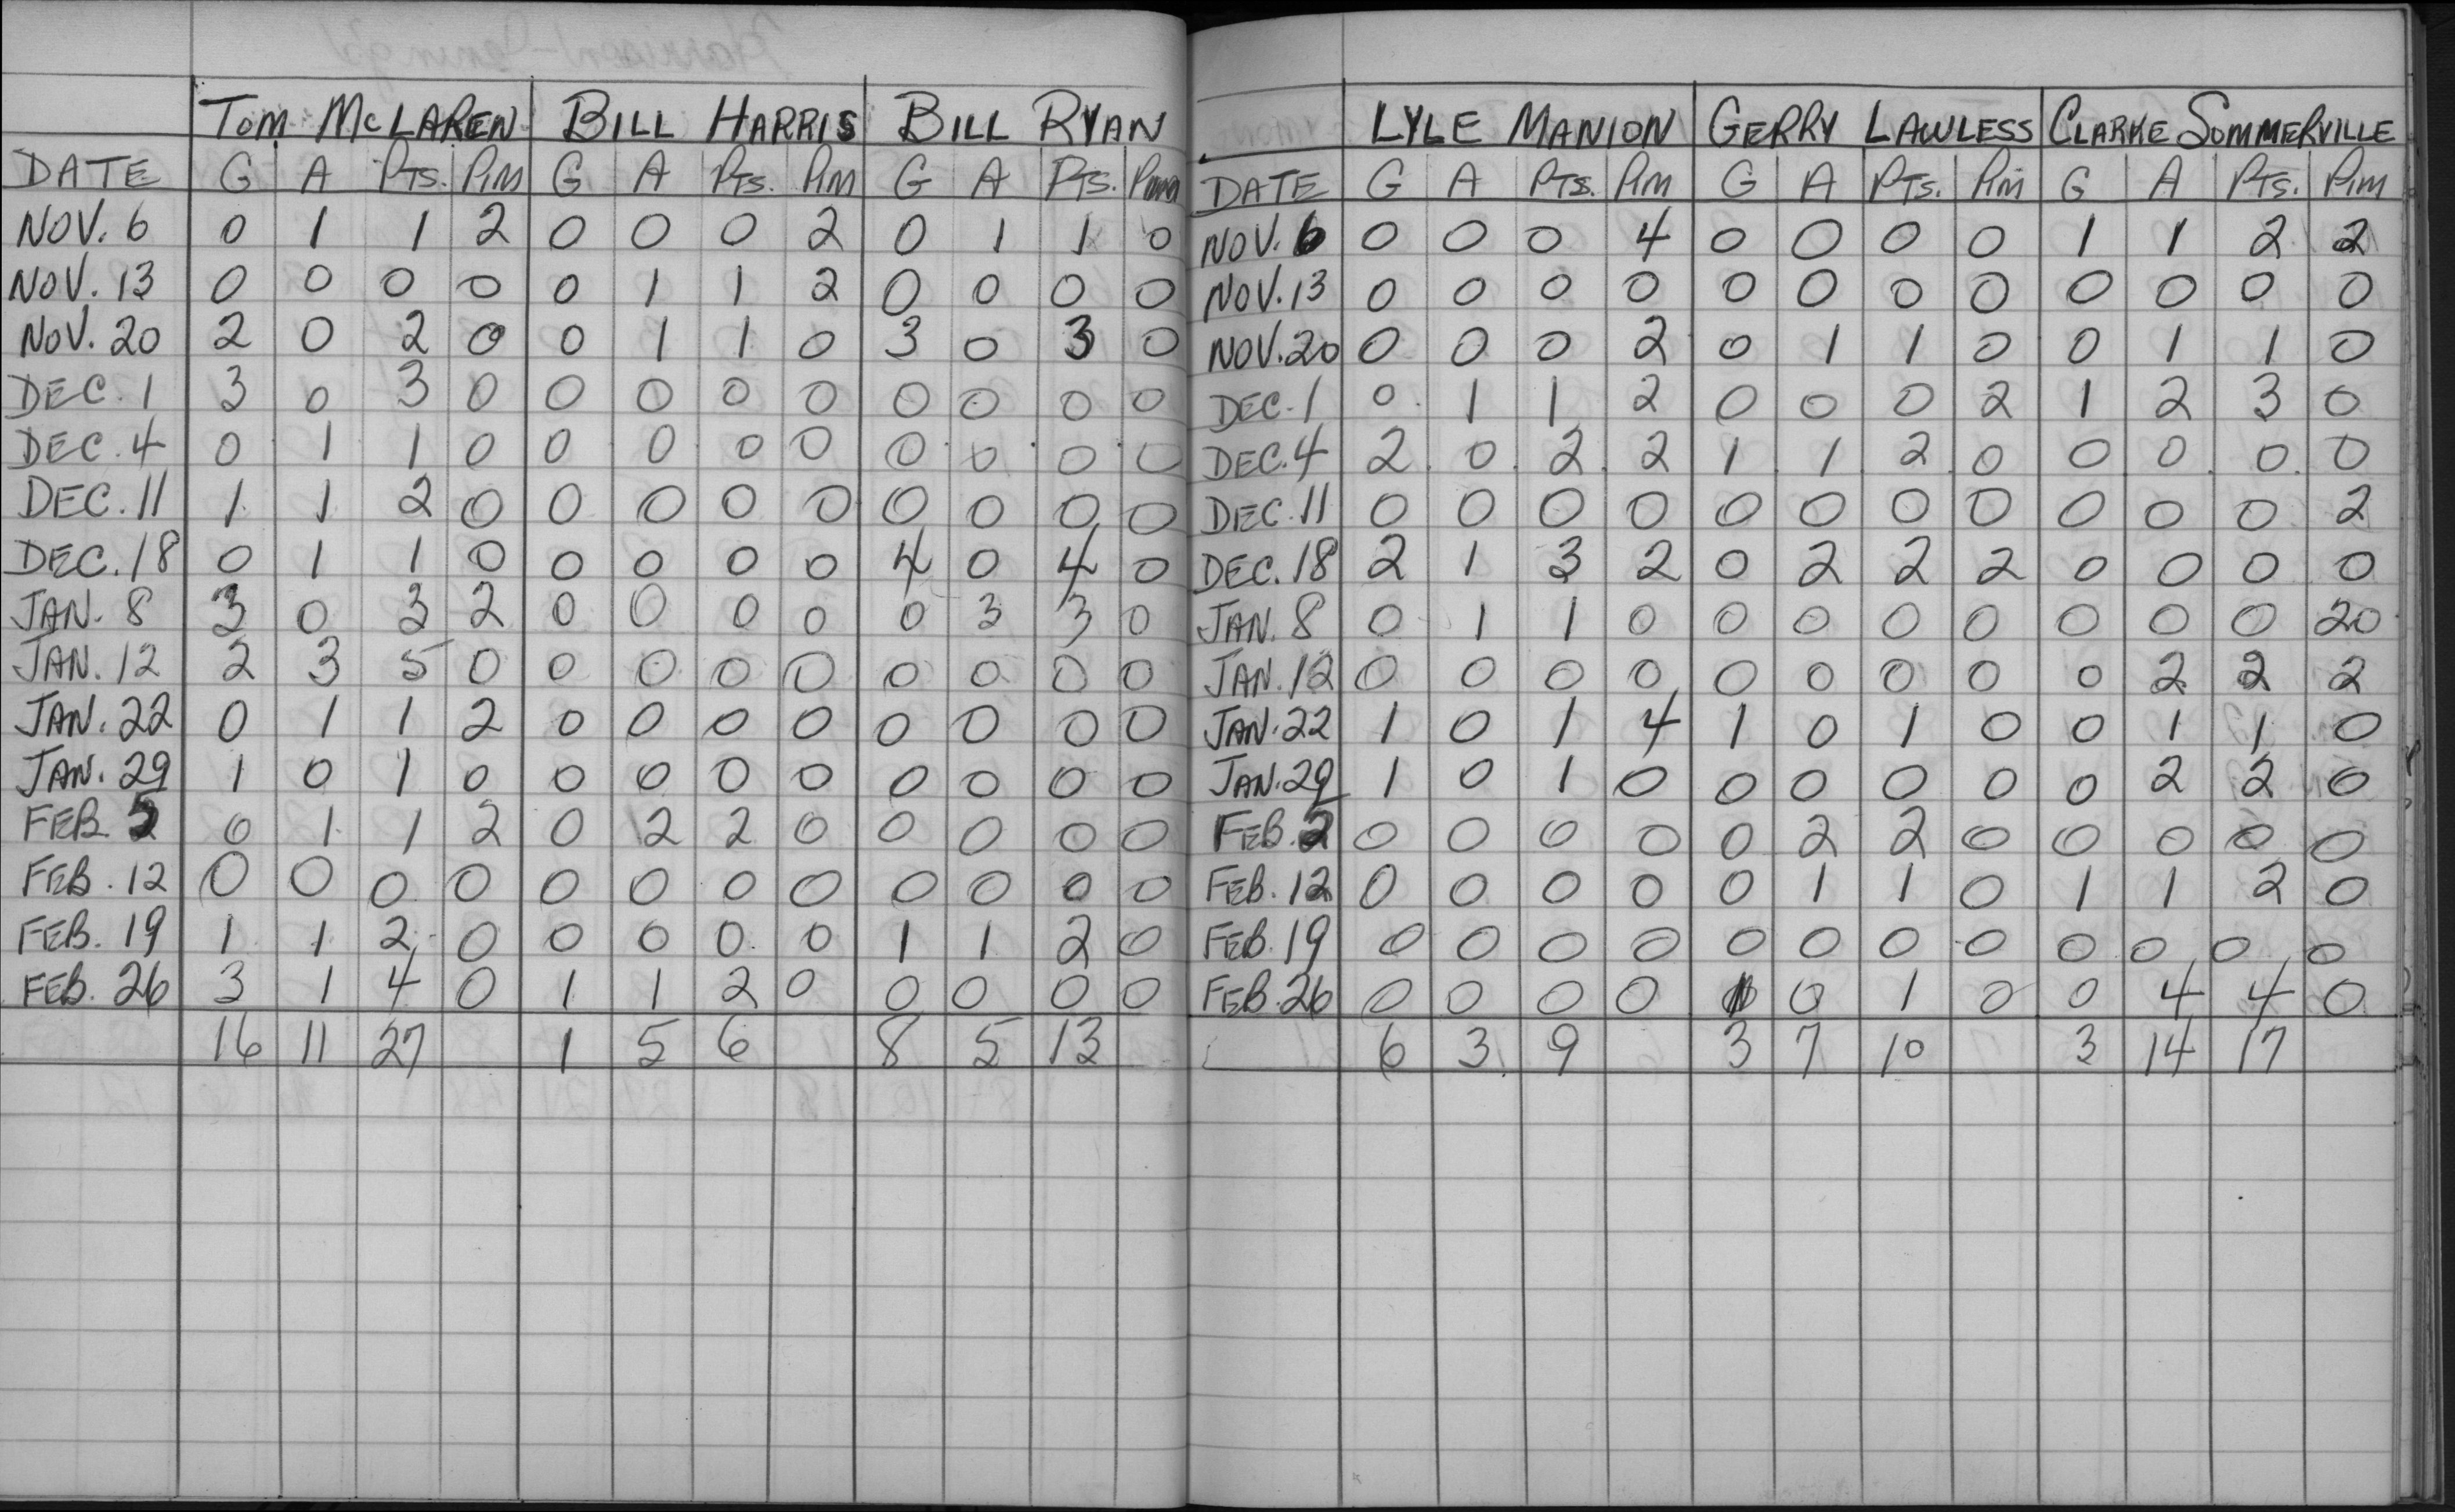 TOM McLAREN BILL HARRIS BILL RYAN
DATE G A PTS. PIM G A PTS. PIM G A PTS. PIM
NOV. 6 0 1 1 2 0 0 0 2 0 1 1 0
NOV. 13 0 0 0 0 0 1 1 2 0 0 0 0
NOV. 20 2 0 2 0 0 1 1 0 3 0 3 0
DEC. 1 3 0 3 0 0 0 0 0 0 0 0 0
DEC. 4 0 1 1 0 0 0 0 0 0 0 0 0
DEC. 11 1 1 2 0 0 0 0 0 0 0 0 0
DEC. 18 0 1 1 0 0 0 0 0 4 0 4 0
JAN. 8 3 0 3 2 0 0 0 0 0 3 3 0
JAN. 12 2 3 5 0 0 0 0 0 0 0 0 0
JAN. 22 0 1 1 2 0 0 0 0 0 0 0 0
JAN. 29 1 0 1 0 0 0 0 0 0 0 0 0
FEB. 0 1 1 2 0 2 2 0 0 0 0 0
FEB. 12 0 0 0 0 0 0 0 0 0 0 0 0
FEB. 19 1 1 2 0 0 0 0 0 1 1 2 0
FEB. 26 3 1 4 0 1 1 2 0 0 0 0 0
16 11 27 1 5 6 8 5 13
LYLE MANION GERRY LAWLESS CLARKE SOMMERVILLE
DATE G A PTS. PIM G A PTS. PIM G A PTS. PIM
NOV. 6 0 0 0 4 0 0 0 0 1 1 2 2
NOV. 13 0 0 0 0 0 0 0 0 0 0 0 0
NOV. 20 0 0 0 2 0 1 1 0 0 1 1 0
DEC. 1 0 1 1 2 0 0 0 2 1 2 3 0
DEC. 4 2 0 2 2 1 1 2 0 0 0 0 0
DEC. 11 0 0 0 0 0 0 0 0 0 0 0 2
DEC. 18 2 1 3 2 0 2 2 2 0 0 0 0
JAN. 8 0 1 1 0 0 0 0 0 0 0 0 20
JAN. 12 0 0 0 0 0 0 0 0 0 2 2 2
JAN. 22 1 0 1 4 1 0 1 0 0 1 1 0
JAN. 29 1 0 1 0 0 0 0 0 0 2 2 0
FEB. 2 0 0 0 0 0 2 2 0 0 0 0 0
FEB. 12 0 0 0 0 0 1 1 0 1 1 2 0
FEB. 19 0 0 0 0 0 0 0 0 0 0 0 0
FEB. 26 0 0 0 0 1 0 1 0 0 4 4 0
6 3 9 3 7 10 3 14 17